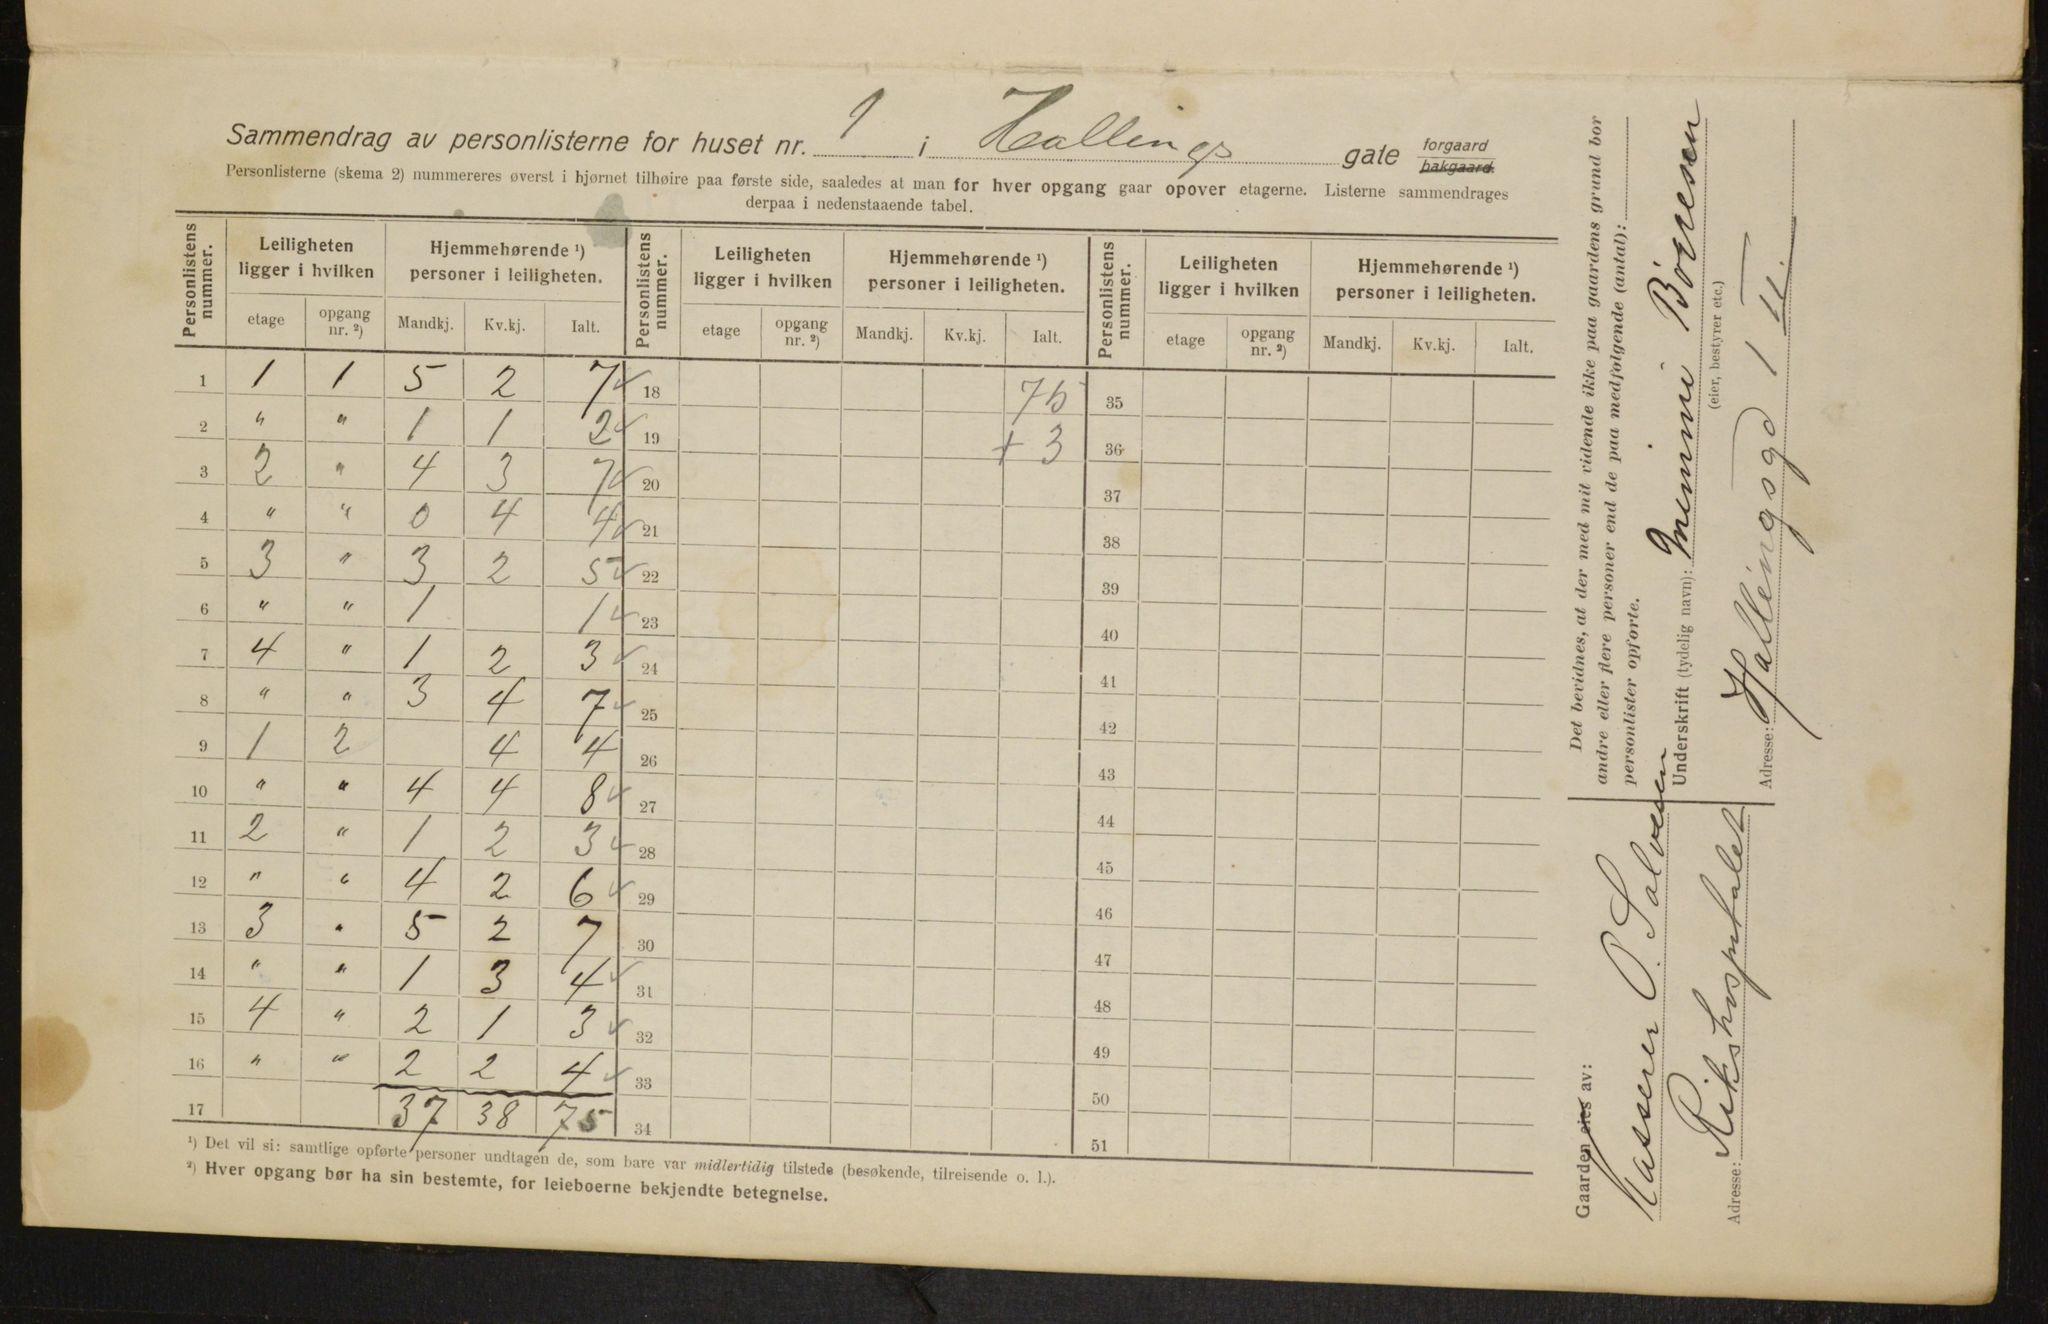 Sammendrag av personlisterne for huset nr. 1 i Hallings gate forgaard bakgaard.
Personlisterne (skema 2) nummereres øverst i hjørnet tilhøire paa første side, saaledes at man for hver opgang gaar opover etagerne. Listerne sammendrages
derpaa i nedenstaaende tabel.
Personlistens nummer. Leiligheten ligger i hvilken Hjemmehørende ¹) personer i leiligheten. Personlistens nummer. Leiligheten ligger i hvilken Hjemmehørende ¹) personer i leiligheten. Personlistens nummer. Leiligheten ligger i hvilken Hjemmehørende ¹) personer i leiligheten.
etage opgang nr. ²) Mandkj. Kv.kj. Ialt. etage opgang nr. ²) Mandkj. Kv.kj. Ialt. etage opgang nr. ²) Mandkj. Kv.kj. Ialt.
1 1 1 5 2 7 ✓ 18 75 35
2 " " 1 1 2 ✓ 19 + 3 36
3 2 " 4 3 7 ✓ 20 37
4 " " 0 4 4 ✓ 21 38
5 3 " 3 2 5 ✓ 22 39
6 " " 1 1 ✓ 23 40
7 4 " 1 2 3 ✓ 24 41
8 " " 3 4 7 ✓ 25 42
9 1 2 4 4 26 43
10 " " 4 4 8 ✓ 27 44
11 2 " 1 2 3 ✓ 28 45
12 " " 4 2 6 ✓ 29 46
13 3 " 5 2 7 30 47
14 " " 1 3 4 ✓ 31 48
15 4 " 2 1 3 ✓ 32 49
16 " " 2 2 4 ✓ 33 50
17 37 38 75 34 51
¹) Det vil si: samtlige opførte personer undtagen de, som bare var midlertidig tilstede (besøkende, tilreisende o. l.).
²) Hver opgang bør ha sin bestemte, for leieboerne bekjendte betegnelse.
Det bevidnes, at der med mit vidende ikke paa gaardens grund bor
andre eller flere personer end de paa medfølgende (antal):
personlister opførte.
Underskrift (tydelig navn): Minni Börresen
(eier, bestyrer etc.)
Adresse: Hallingsgd 1 III
Gaarden eies av:
Kasserer O. Salvesen
Adresse: Rikshospitalet